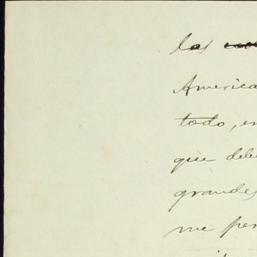 las
America
todo, en
que debe
grandes
me per